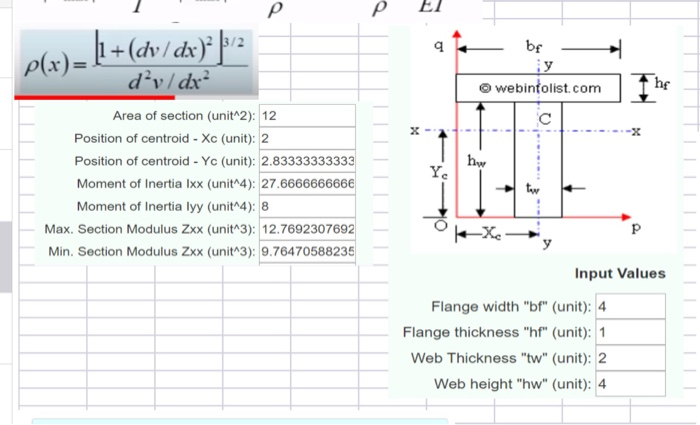 ρ ρ EI
ρ(x)= [1+(dv/dx)²]3/2
d²v/dx²
Area of section (unit^2): 12
Position of centroid - Xc (unit): 2
Position of centroid - Yc (unit): 2.83333333333
Moment of Inertia Ixx (unit^4): 27.6666666666
Moment of Inertia Iyy (unit^4): 8
Max. Section Modulus Zxx (unit^3): 12.7692307692
Min. Section Modulus Zxx (unit^3): 9.76470588235
q bf
y
© webinfolist.com hf
C
x x
Yc hw
tw
O Xc p
y
Input Values
Flange width "bf" (unit): 4
Flange thickness "hf" (unit): 1
Web Thickness "tw" (unit): 2
Web height "hw" (unit): 4